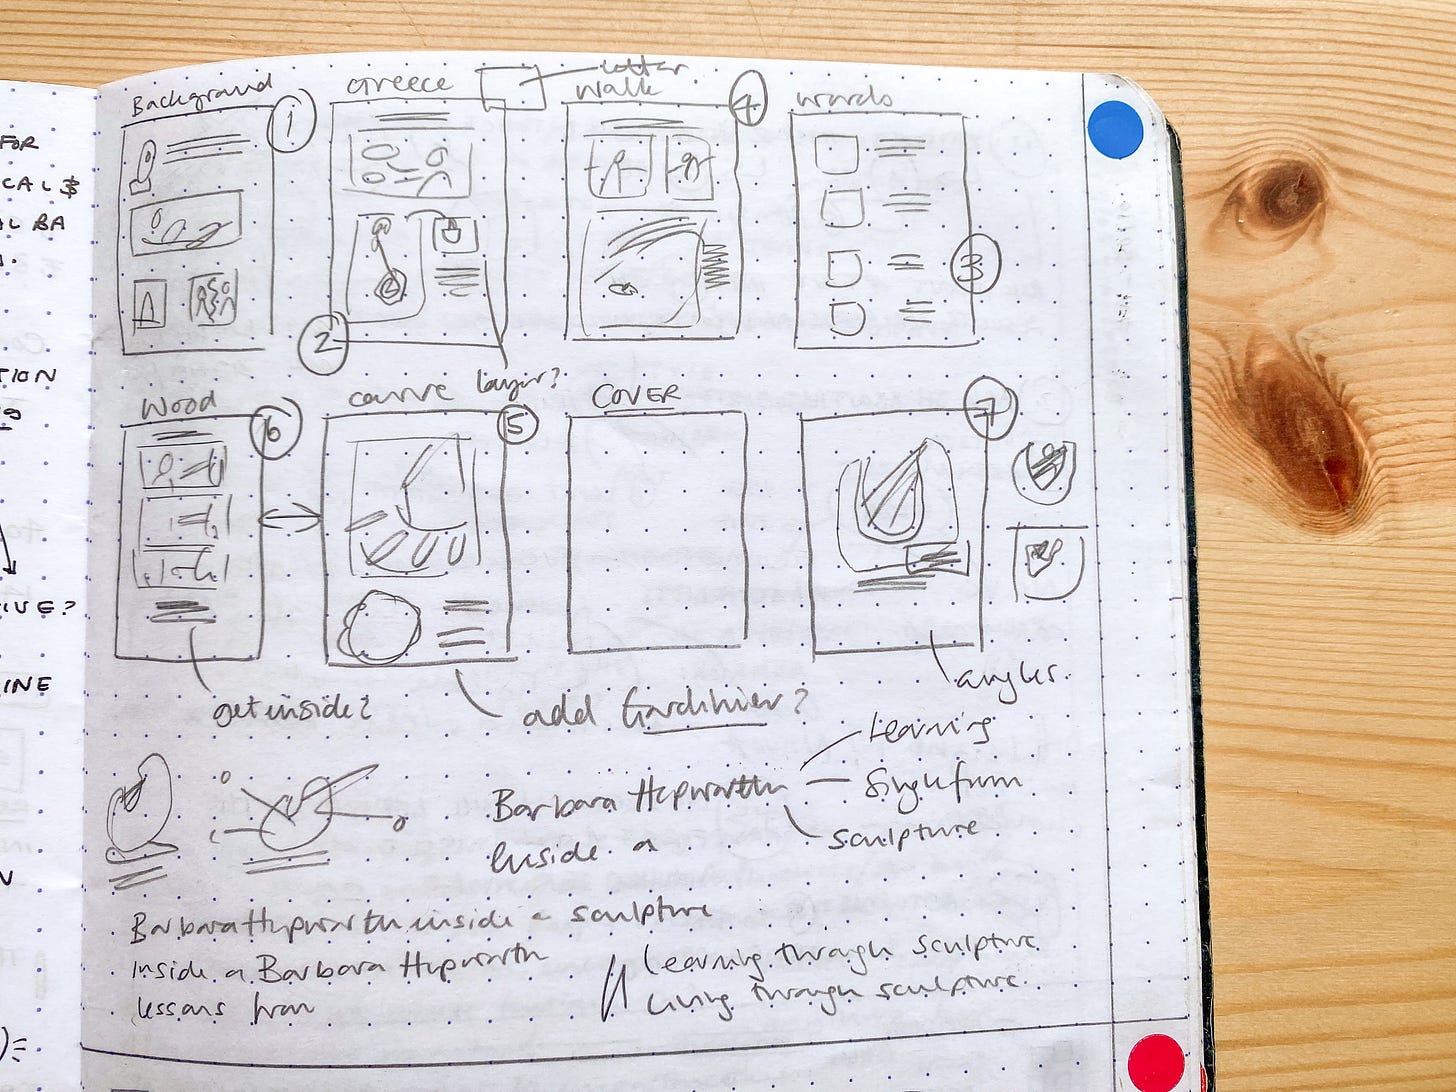 FOR
CAL $
AL BA
TION
IVE?
INE
N
Background
1
Greece
letter
walk
4
words
2
3
layer?
Wood
6
carve
5
COVER
7
get inside?
add Gardinier?
angles.
Barbara Hepworth
Learning
Single form
sculpture
Inside a
Barbara Hepworth inside a sculpture
Inside a Barbara Hepworth
lessons from
Learning through sculpture
Living through sculpture.